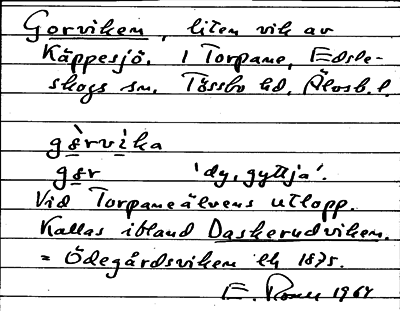 Gorviken, liten vik av
Käppesjö. I Torpane, Edsle-
skogs sn. Tössbo hd, Älvsb. l.
gèrvìka
gɵr 'dy, gyttja'.
Vid Torpaneälvens utlopp.
Kallas ibland Daskerudviken.
= Ödegårdsviken Ek 1875.
E. 1964